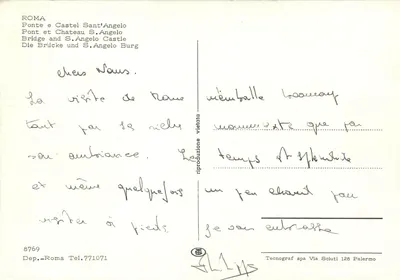 ROMA
Ponte e Castel Sant'Angelo
Pont et Chateau S. Angelo
Bridge and S. Angelo Castle
Die Brücke und S. Angelo Burg
chers
La visite de Rome
tant par sa
son ambiance. Le
et même quelquefois
visiter à pied
que par
temps est splendide
un peu chaud pour
je vous embrasse
riproduzione vietata
8769
Dep. Roma Tel. 771071
Tecnograf spa Via Sciuti 126 Palermo